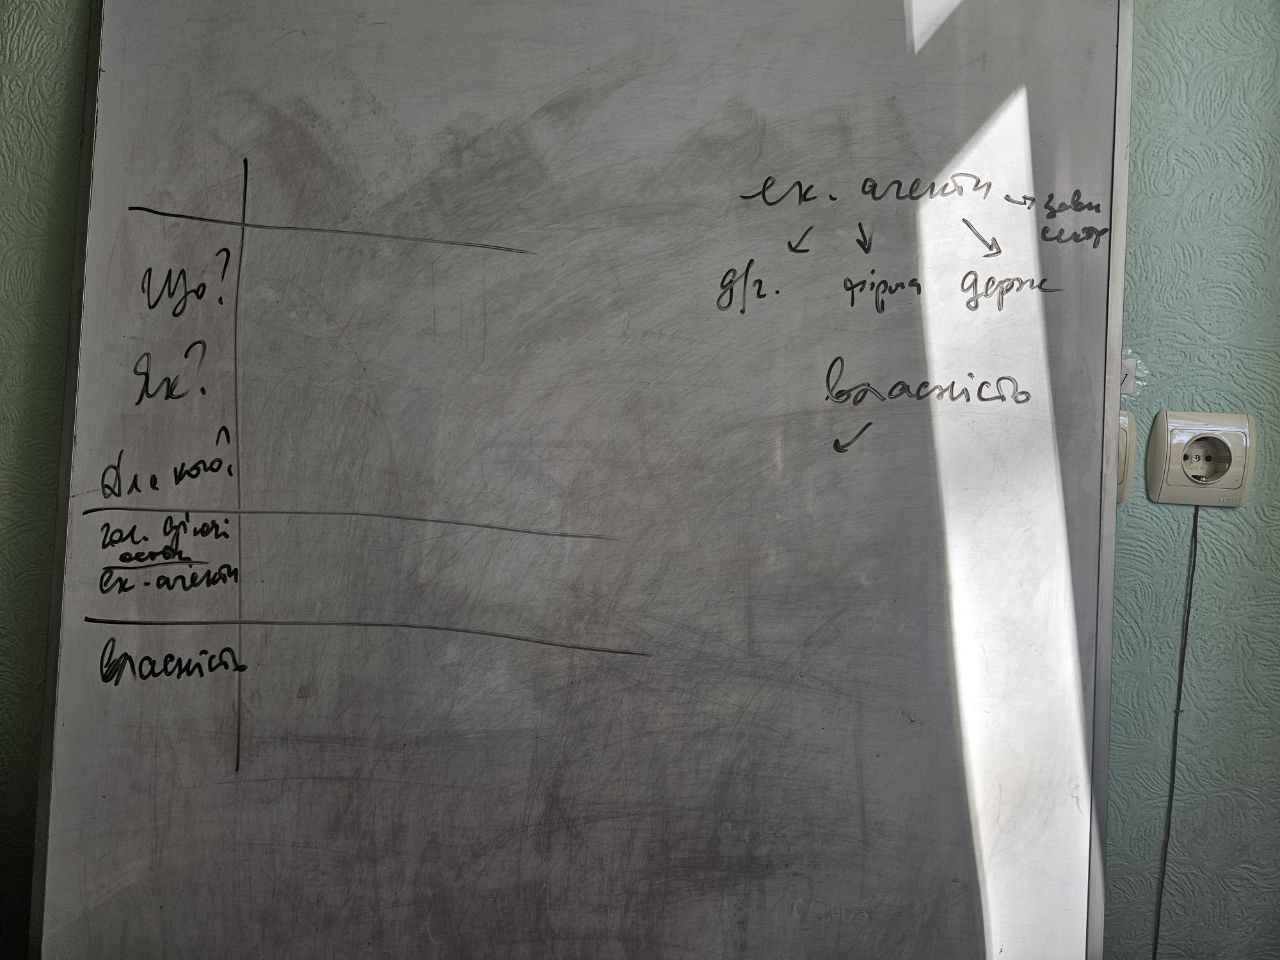 Що?
Як?
Для кого?
гол. дійові
особи
ек. агенти
власність
ек. агенти →
д/г. фірма держ
власність